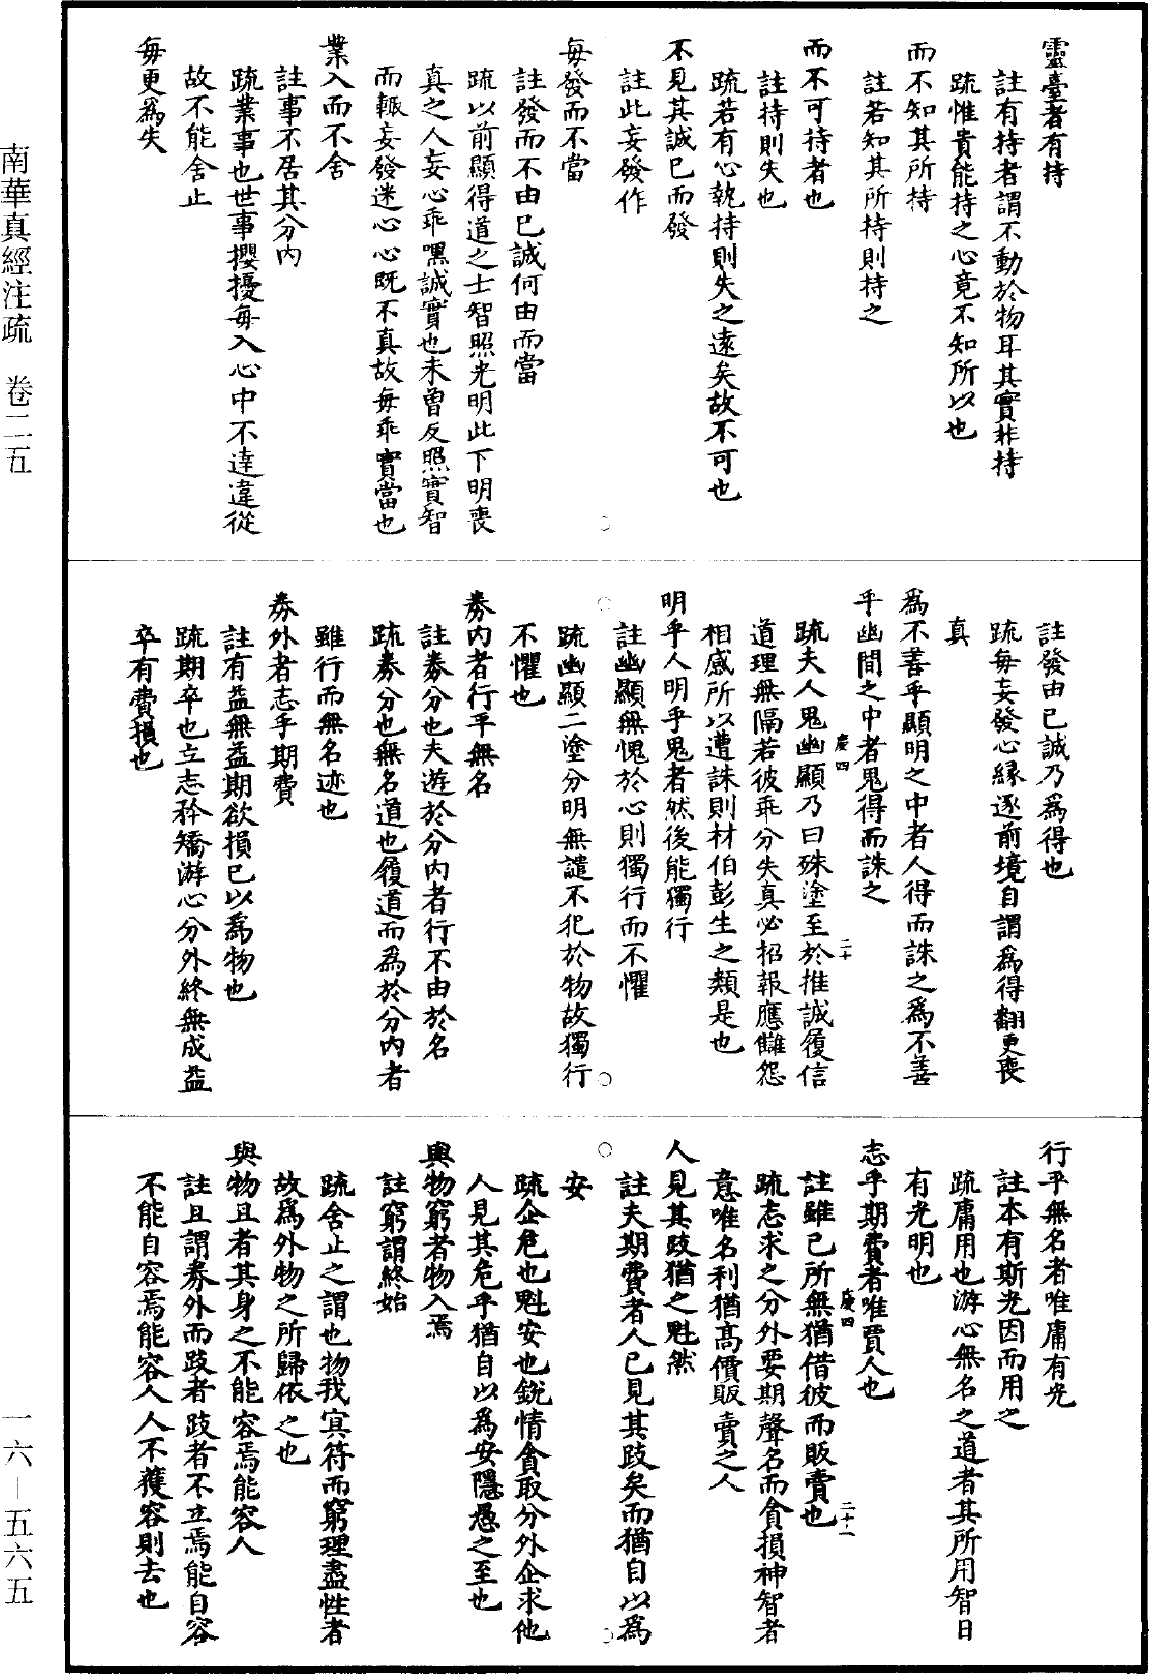 靈臺者有持
註有持者謂不動於物耳其實非持
疏惟貴能持之心竟不知所以也
而不知其所持
註若知其所持則持之
而不可持者也
註持則失也
疏若有心執持則失之遠矣故不可也
不見其誠已而發
註此妄發作
每發而不當
註發而不由已誠何由而當
疏以前顯得道之士智照光明此下明喪
真之人妄心乖嘿誠實也未曾反照實智
而輙妄發迷心心既不真故每乖實當也
業入而不舍
註事不居其分內
疏業事也世事攖擾每入心中不達違從
故不能舍止
每更為失
註發由已誠乃為得也
疏每妄發心緣逐前境自謂為得翻更喪
真
為不善乎顯明之中者人得而誅之為不善
乎幽間之中者鬼得而誅之
疏夫人鬼幽顯乃曰殊塗至於推誠履信
道理無隔若彼乖分失真必招報應讎怨
相感所以遭誅則材伯彭生之類是也
明乎人明乎鬼者然後能獨行
註幽顯無愧於心則獨行而不懼
疏幽顯二塗分明無譴不犯於物故獨行
不懼也
券內者行乎無名
註券分也夫遊於分內者行不由於名
疏券分也無名道也履道而為於分內者
雖行而無名迹也
券外者志乎期費
註有益無益期欲損已以為物也
疏期卒也立志矜矯游心分外終無成益
卒有費損也
慶四
二十
行乎無名者唯庸有光
註本有斯光因而用之
疏庸用也游心無名之道者其所用智日
有光明也
志乎期費者唯賈人也
註雖已所無猶借彼而販賣也
疏志求之分外要期聲名而貪損神智者
意唯名利猶高價販賣之人
人見其跂猶之魁然
註夫期費者人已見其跂矣而猶自以為
安
疏企危也魁安也銳情貪取分外企求他
人見其危乎猶自以為安隱愚之至也
與物窮者物入焉
註窮謂終始
疏舍止之謂也物我冥符而窮理盡性者
故為外物之所歸依之也
與物且者其身之不能容焉能容人
註且謂券外而跂者跂者不立焉能自容
不能自容焉能容人人不獲容則去也
慶四
二十一
南華真經注疏 卷二五
一六—五六五